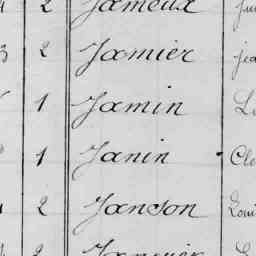 2 Jameux
3 2 Jamier
1 Jamin L
1 Janin Clo
2 Janson Loui
2